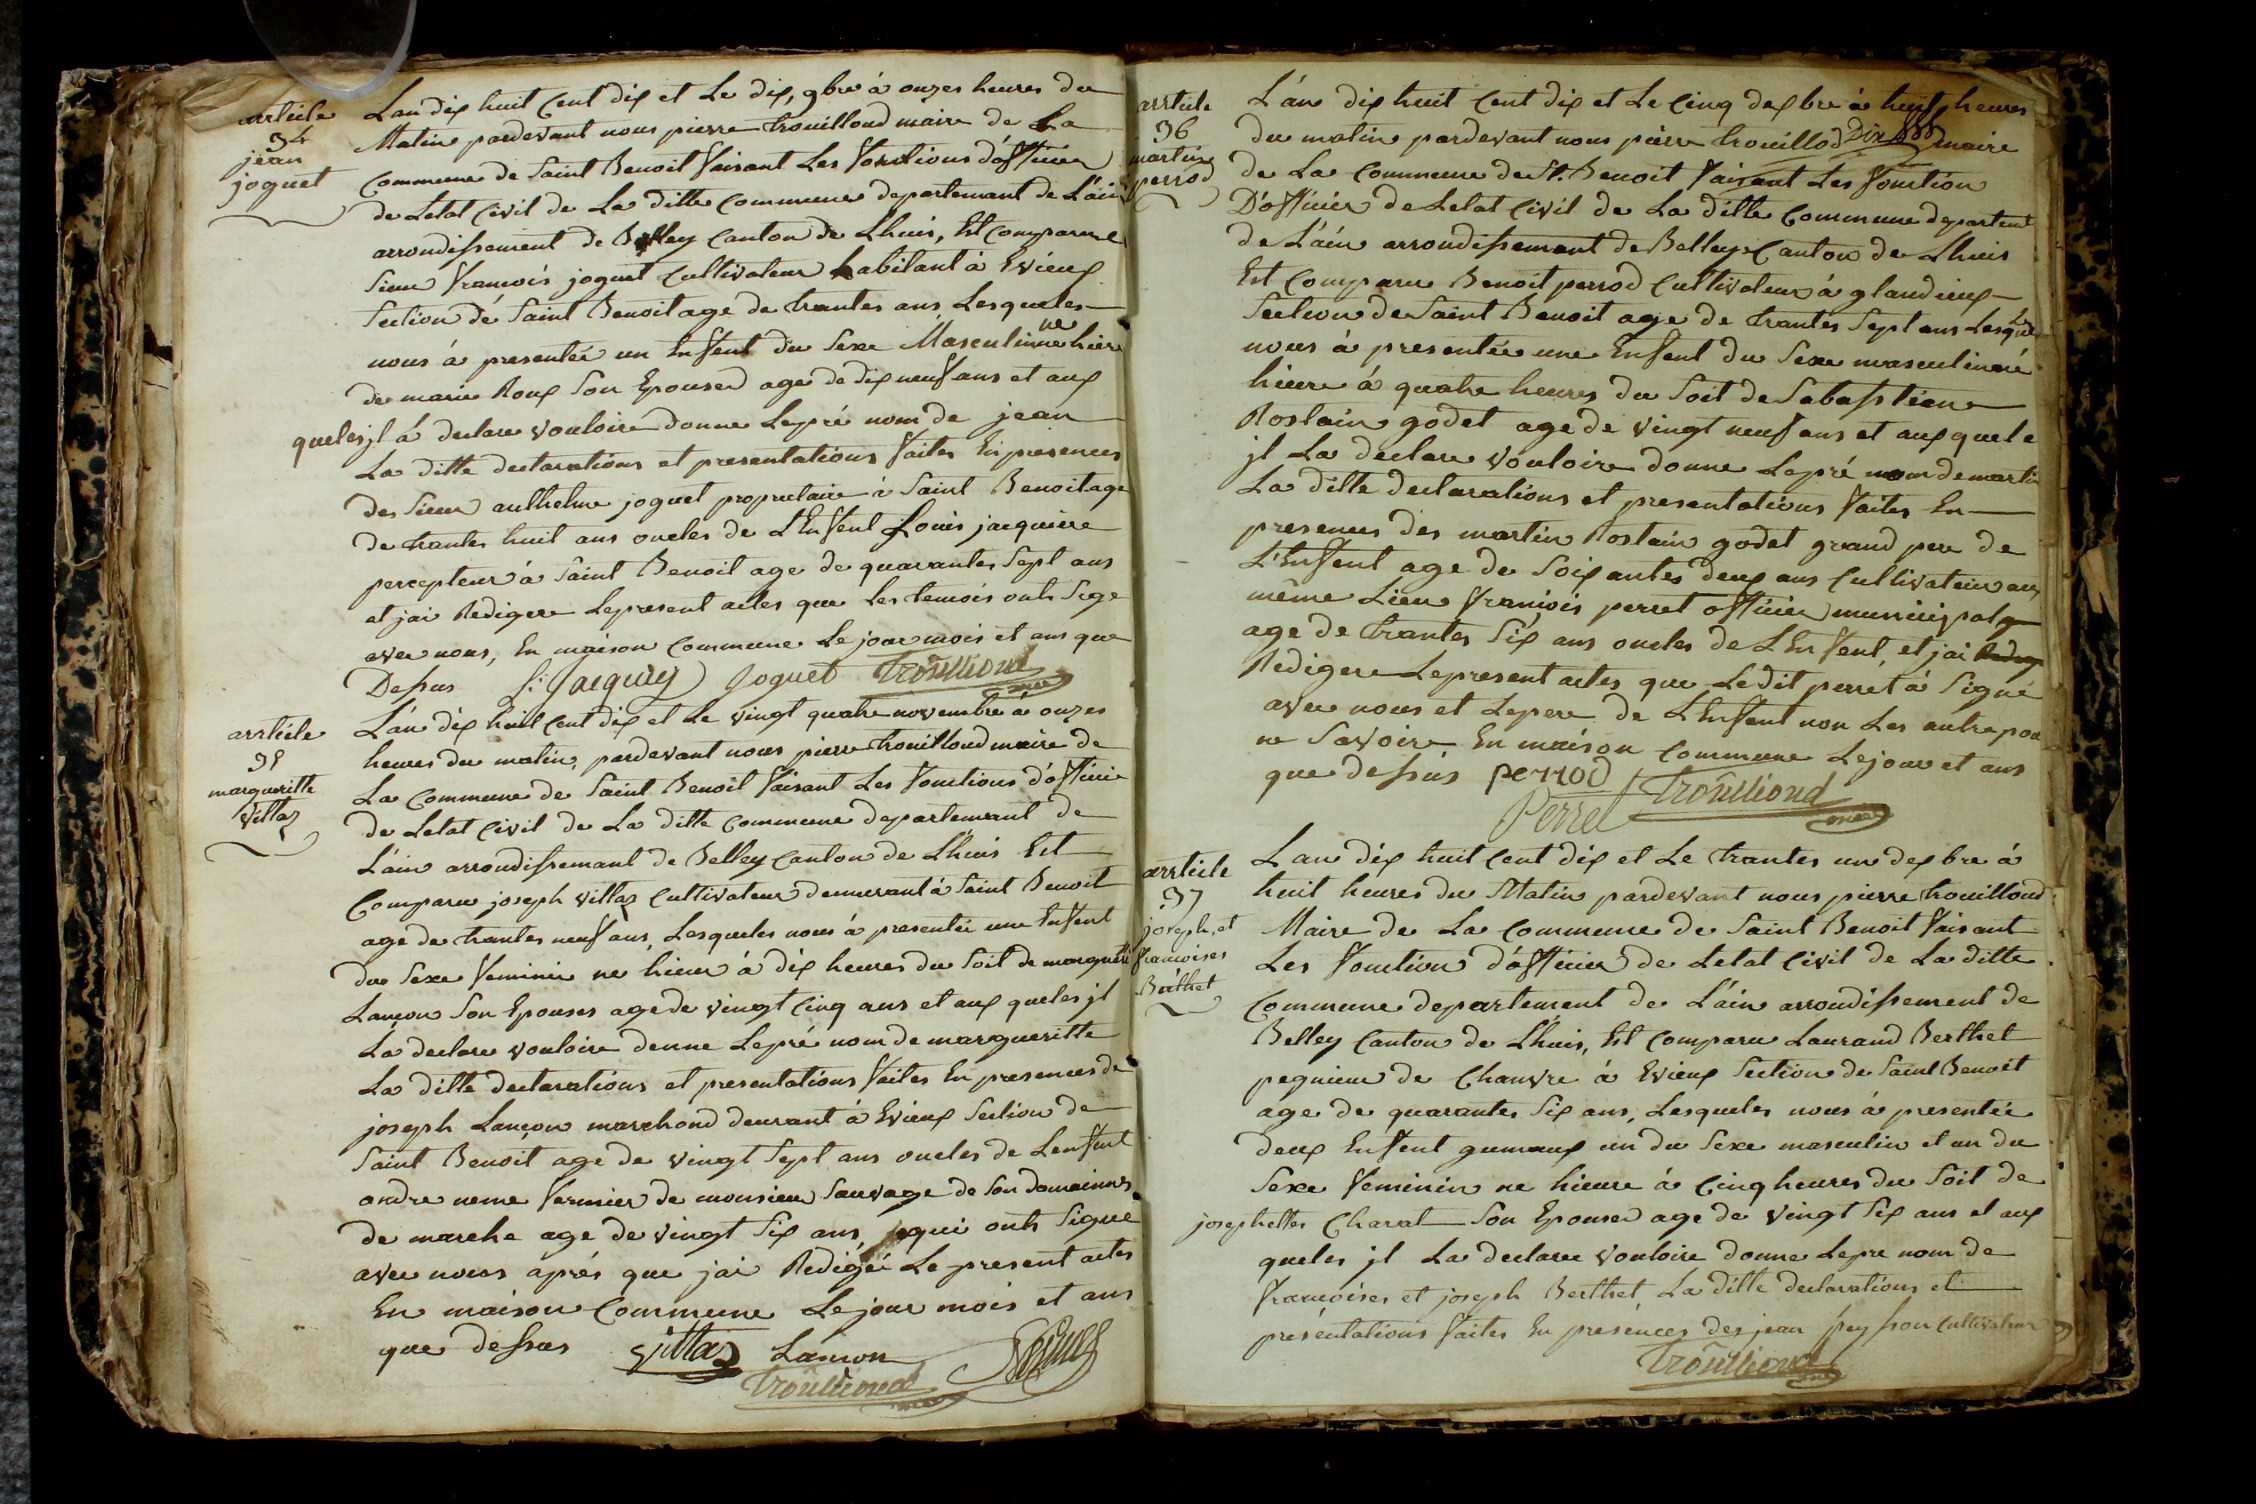 article
34
jean
joguet
L'an dix huit Cent dix et Le dix, 9bre à onzes heures du
Matin pardevant nous pierre trouilloud maire de La
Commune de Saint Benoit faisant Les fonctions d'officier
de Letat Civil de La ditte Commune departemant de L'ain
arrondissement de Belley Canton de Lhuis, Est Comparue
Sieur francois joguet Cultivateur habitant à Evieux
Section de Saint Benoit age de trantes ans Lesqueles
nous à presentée un Enfent du Sexe Masculinne né hiere
de marie Roux Son Epouse age de dix neuf ans et aux
queles jl à declare vouloire donne Lepré nom de jean
La ditte declarations et presentations faites En presences
des Sieur anthelme joguet proprietaire à Saint Benoit age
de trantes huit ans oncles de L'Enfent Louis jacquiere
percepteur à Saint Benoit age de quarantes Sept ans
et jai Redigere Lepresent actes que Les temois onts Sige
avec nous, En maison Commune Le jour mois et ans que
Dessus Jacquiy Joguet Troûilloud
maire
article
35
margueritte
Villaz
L'an dix huit Cent dix et Le vingt quatre novembre à onzes
heures du matin, pardevant nous pierre trouilloud maire de
La Commune de Saint Benoit faisant Les fonctions d'officie
de Letat Civil de La ditte Commune departemant de
L'ain arrondissemant de Belley Canton de Lhuis Est
Comparu joseph villaz Cultivateur demeurant à Saint Benoit
age de trantes neuf ans, Lesqueles nous à presentée une Enfent
du Sexe feminin ne hieur à dix heures du Soit de margueri
Lançon Son Epouses age de vingt Cinq ans et aux queles jl
La declare vouloire donne Lepré nom de margueritte
La ditte declarations et presentations faites En presences de
joseph Lançon marchand deurant à Evieux Section de
Saint Benoit age de vingt Sept ans oncles de Lenfent
andre neme fermier de monsieur Sauvage de Son domainnes
de marche age de vingt Six ans, qui onts Signe
avec nous aprés que jai Redigéé Le present actes
En maison Commune Le jour mois et ans
que dessus Villaz Lancon
Troûilloud
maire
article
36
martin
perrod
L'an dix huit Cent dix et Le Cinq dexbre à huit heures
du matin pardevant nous pierre trouillod maire
de La Commune de St. Benoit faisant Les fonction
D'officier de Letat Civil de La ditte Commune departent
de L'ain arrondissemant de Belley Canton de Lhuis
Est Comparu Benoit perrod Cultivateur à glandieux
Section de Saint Benoit age de trantes Sept ans Lesque
nous à presentée une Enfent du Sexe masculin né
hieure à quatre heures du Soit de Sabasttiene
Rostain godet age de vingt neuf ans et aux quele
jl La declare vouloire donne Lepré nom de martin
La ditte declarations et presentations faites En
presences des martin Rostain godet grand pere de
L'Enfent age de Soixantes deux ans Cultivateur au
même Lieu franiois perret officier municipal
age de trantes Six ans oncles de L'Enfent, et jai
Redigere Lepresent actes que Ledit perret à Signé
avec nous et Lepere de L'Enfent non Les autre pou
ne Savoire, En maison Commune Le jour et ans
que dessus perrod
Perret Troûilloud
maire
article
37
joseph, et
francoises
Bérthet
L'an dix huit Cent dix et Le trantes un dexbre à
huit heures du Matin pardevant nous pierre trouilloud
Maire de La Commune de Saint Benoit faisant
Les fonction d'officier de Letat Civil de La ditte
Commune departement de L'ain arrondissement de
Belley Canton de Lhuis, Est Comparu Laurand Berthet
pegnieur de Chanvre à Evieux Section de Saint Benoit
age de quarantes Six ans, Lesqueles nous à presentée
deux Enfent gumaux un du Sexe masculin et un du
Sexe feminin ne hieure à Cinq heures du Soit de
josephettes Charat Son Epouse age de vingt Six ans et aux
queles jl La declare vouloire donne Lepre nom de
francoises et joseph Berthet La ditte declarations et
presentations faites En presences des jean peysson Cultivateur
Troûilloud
maire